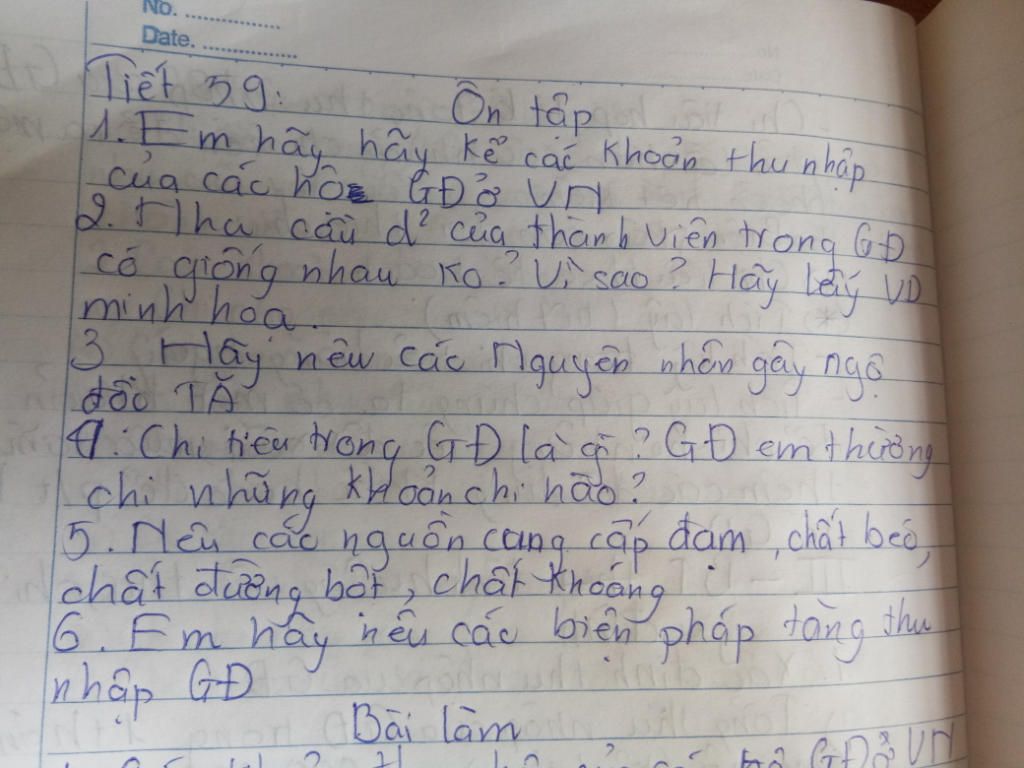 No. ................
Date. ................
Tiết 59: Ôn tập
1. Em hãy hãy kể các khoản thu nhập
của các hộ GĐ ở VN
2. Nhu cầu d² của thành viên trong GĐ
có giống nhau ko? Vì sao? Hãy lấy VD
minh họa.
3 Hãy nêu các nguyên nhân gây ngộ
độc TĂ
4. Chi tiêu trong GĐ là gì? GĐ em thường
chi những khoản chi nào?
5. Nêu các nguồn cung cấp đạm, chất béo,
chất đường bột, chất khoáng
6. Em hãy nêu các biện pháp tăng thu
nhập GĐ
Bài làm
GĐ ở VN